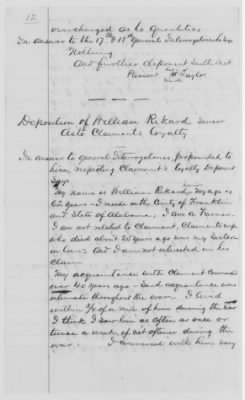 12
overcharged as to quantities
In answer to the 17th & 18th General Interrogatories says
Nothing
And further deponent saith not
Present Taylor
Deposition of William Rikard Senior
As to Claimants Loyalty
In answer to general Interrogatories propounded to
him, respecting Claimant's Loyalty Deponent
Says
My name is William Rikard Senior My age is
62 years - I reside in the County of Franklin
and State of Alabama. I am a Farmer
I am not related to Claimant, Claimants wife
who died about 25 years ago was my Sister
in law, and I am not interested in his
Claim
My acquaintance with Claimant commenced
over 40 years ago - Said acquaintance was
intimate throughout the war. I lived
within of a mile of him during the war
I think I saw him as often as once or
twice a week, if not oftener during the
war. I conversed with him very